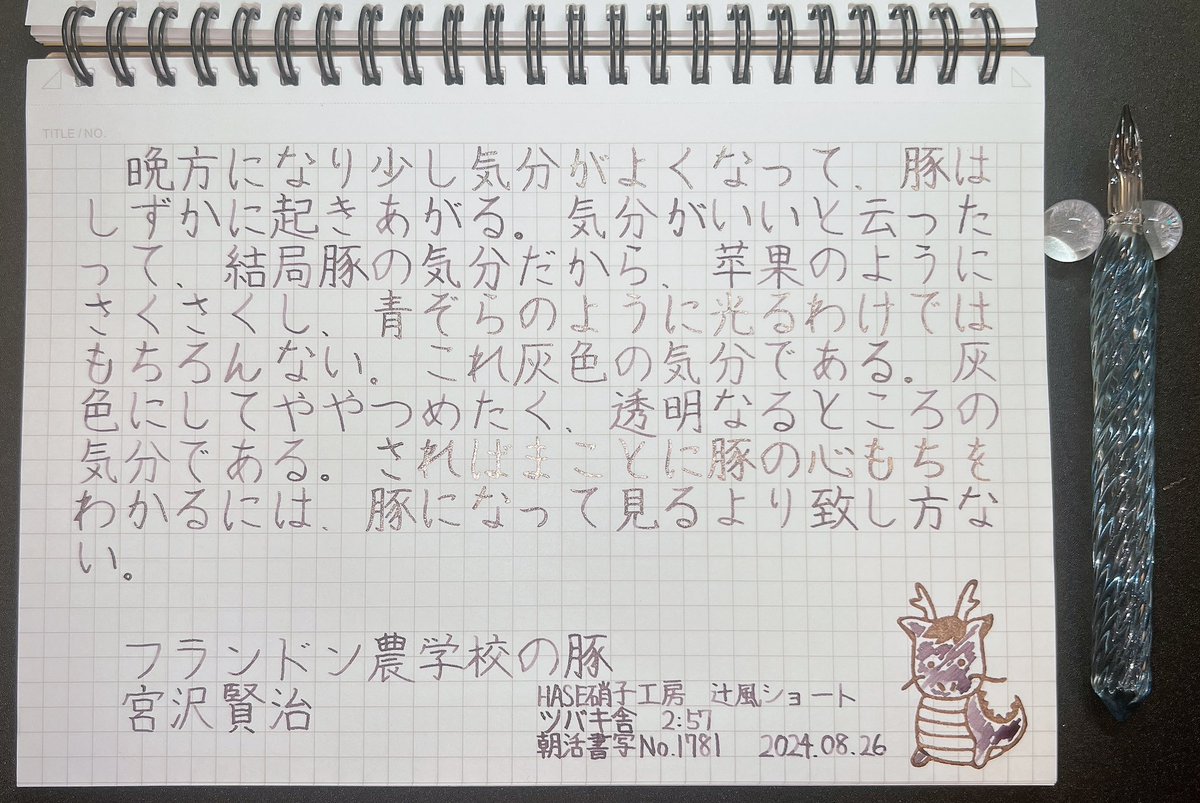 TITLE / NO.
晩方になり少し気分がよくなって、豚は
しずかに起きあがる。気分がいいと云った
って、結局豚の気分だから、苹果のように
さくさくし、青ぞらのように光るわけでは
もちろんない。これ灰色の気分である。灰
色にしてややつめたく、透明なるところの
気分である。さればまことに豚の心もちを
わかるには、豚になって見るより致し方な
い。
フランドン農学校の豚
宮沢賢治
HASE硝子工房 辻風ショート
ツバキ舎 2:57
朝活書写No.1781 2024.08.26